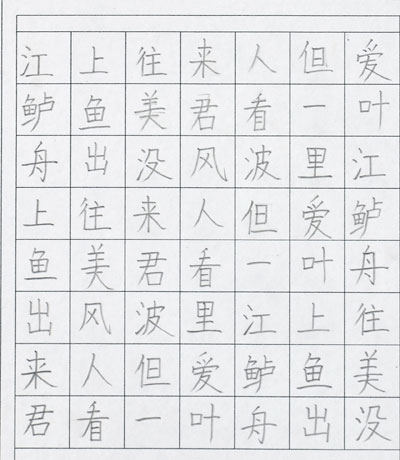 江上往来人但爱
鲈鱼美君看一叶
舟出没风波里江
上往来人但爱鲈
鱼美君看一叶舟
出风波里江上往
来人但爱鲈鱼美
君看一叶舟出没